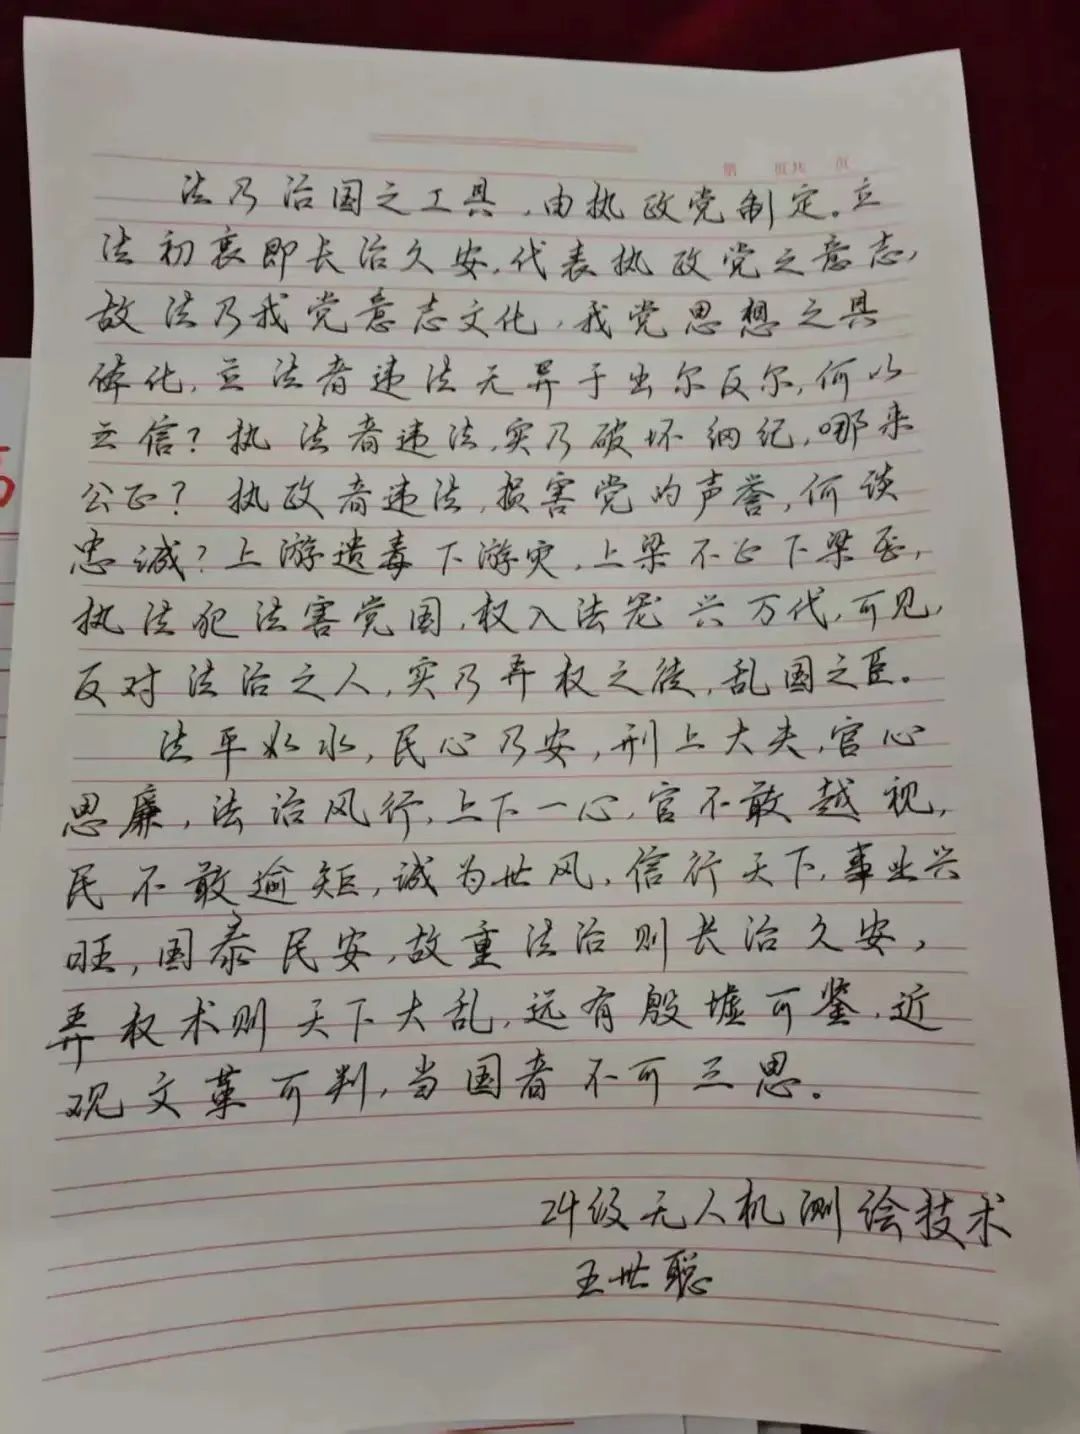 第 页共 页
法乃治国之工具,由执政党制定。立
法初衷即长治久安,代表执政党之意志,
故法乃我党意志文化,我党思想之具
体化,立法者违法无异于出尔反尔,何以
立信?执法者违法,实乃破坏纲纪,哪来
公正?执政者违法,损害党的声誉,何谈
忠诚?上游遗毒下游灾,上梁不正下梁歪,
执法犯法害党国,权入法笼兴万代,可见,
反对法治之人,实乃弄权之徒,乱国之臣。
法平如水,民心乃安,刑上大夫,官心
思廉,法治风行,上下一心,官不敢越视,
民不敢逾矩,诚为世风,信行天下,事业兴
旺,国泰民安,故重法治则长治久安,
弄权术则天下大乱,远有殷墟可鉴,近
观文革可判,当国者不可三思。
24级无人机测绘技术
王世聪